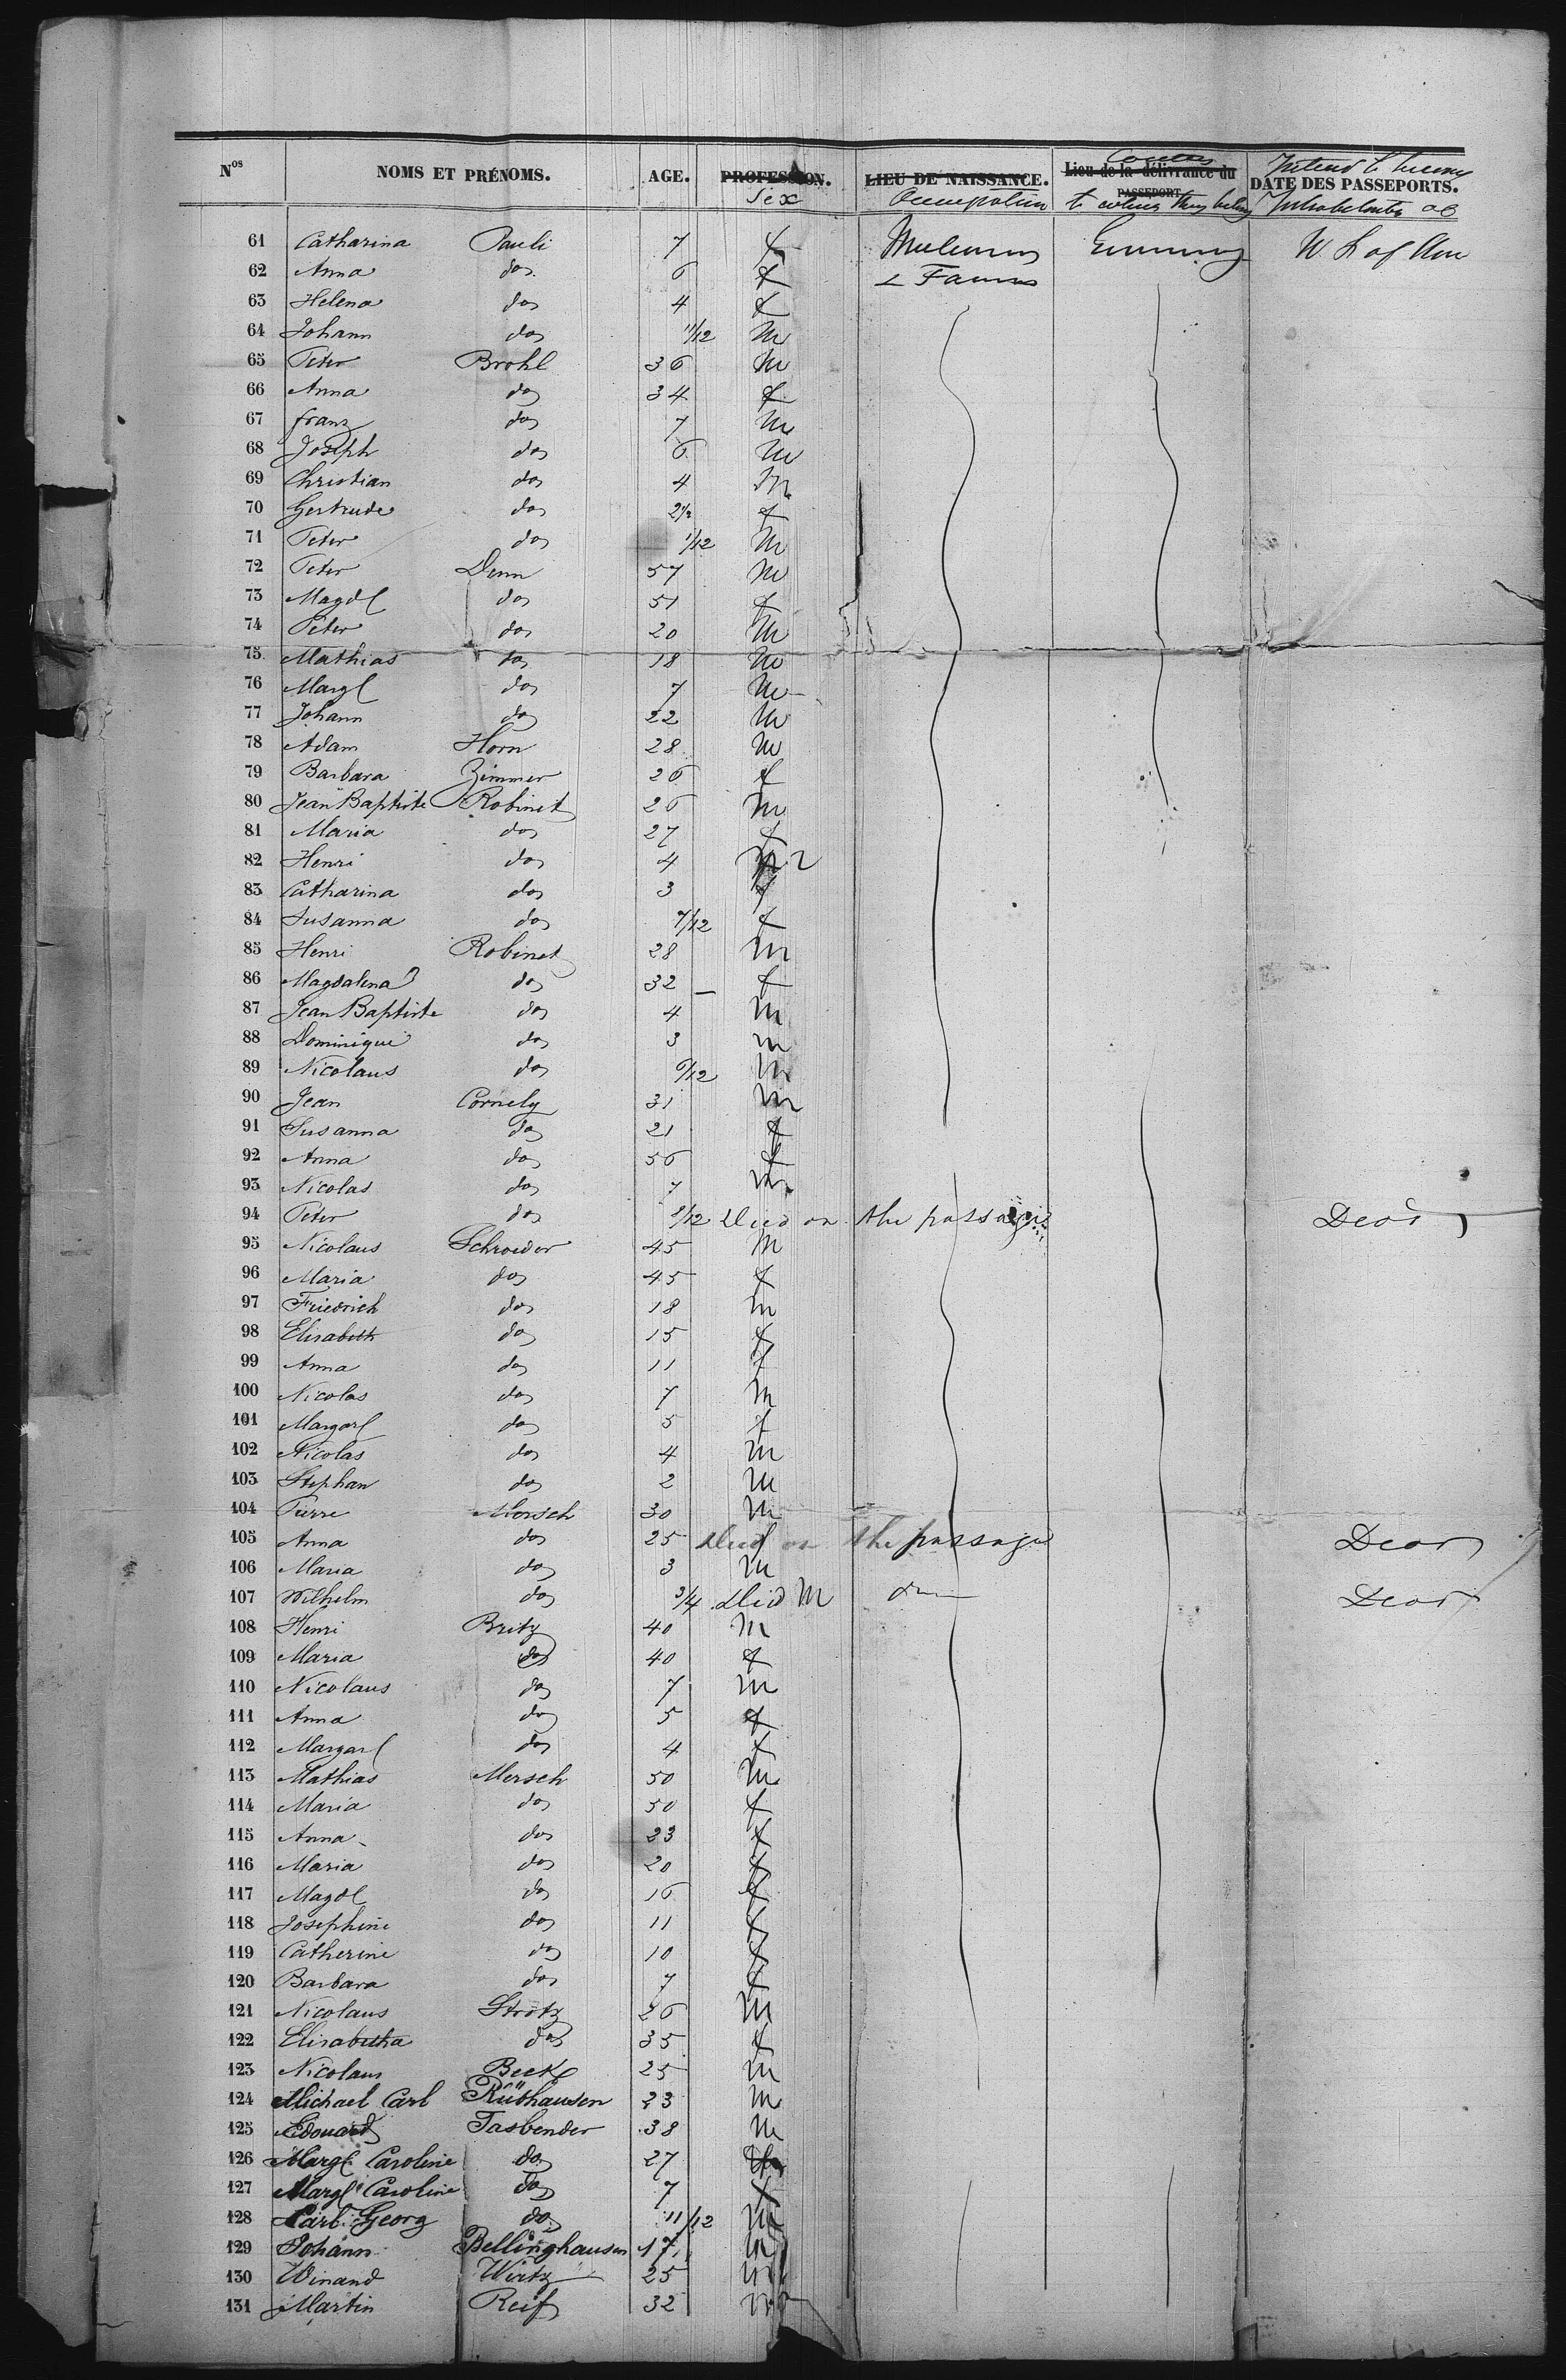 Nos NOMS ET PRÉNOMS. AGE. PROFESSION. Sex LIEU DE NAISSANCE. Occupation Lieu de la délivrance du PASSEPORT. Country to which they belong DATE DES PASSEPORTS. Intend to become Inhabitants of
61 Catharina Pauli 7 f Germany U S of Am
62 Anna do 6 f & Farmers
63 Helena do 4 f
64 Johann do 11/12 m
65 Peter Brohl 36 m
66 Anna do 34 f
67 Franz do 7 m
68 Joseph do 6 m
69 Christian do 4 m
70 Gertrude do 2½ f
71 Peter do 1/12 m
72 Peter Denn 57 m
73 Magdl do 51 f
74 Peter do 20 m
75 Mathias do 18 m
76 Margl do 7 m
77 Johann do 22 m
78 Adam Horn 28 m
79 Barbara Zimmer 26 f
80 Jean Baptiste Robinet 26 m
81 Maria do 27 f
82 Henri do 4 m
83 Catharina do 3 f
84 Susanna do 7/12 f
85 Henri Robinet 28 m
86 Magdalena do 32 f
87 Jean Baptiste do 4 m
88 Dominique do 3 m
89 Nicolaus do 6/12 m
90 Jean Cornely 31 m
91 Susanna do 21 f
92 Anna do 56 f
93 Nicolas do 7 m
94 Peter do /12 Died on the passage Dead
95 Nicolaus Schroeder 45 m
96 Maria do 45 f
97 Friedrich do 18 m
98 Elisabeth do 15 f
99 Anna do 11 f
100 Nicolas do 7 m
101 Margarl do 5 f
102 Nicolas do 4 m
103 Stephan do 2 m
104 Pierre Mersch 30 m
105 Anna do 25 f Died on the passage Dead
106 Maria do 3 m
107 Wilhelm do 3/4 Died m do Dead
108 Henri Britz 40 m
109 Maria do 40 f
110 Nicolaus do 7 m
111 Anna do 5 f
112 Margarl do 4 f
113 Mathias Mersch 50 m
114 Maria do 50 f
115 Anna do 23 f
116 Maria do 20 f
117 Magdl do 16 f
118 Josephine do 11 f
119 Catherine do 10 f
120 Barbara do 7 f
121 Nicolaus Strotz 26 m
122 Elisabetha do 35 f
123 Nicolaus Beck 25 m
124 Michael Carl Rüthausen 23 m
125 Edouard Fasbender 38 m
126 Margl Caroline do 27
127 Margl Caroline do 7 f
128 Carl Georg do 11/12 m
129 Johann Bellinghausen 17 m
130 Winand Wirtz 25 m
131 Martin Reif 32 m